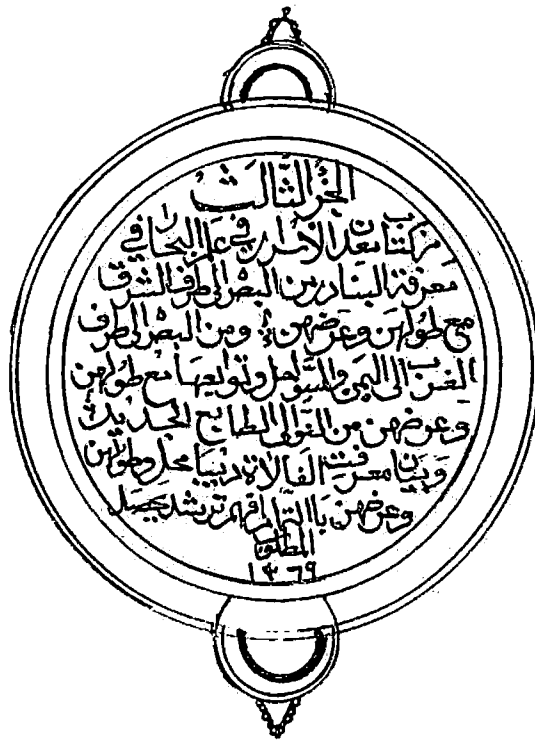 الجزء الثالث
من كتاب معدن الاسرار في علم البحار في
معرفة البنادر من البصر الى طرف الشرق
مع طولهن وعرضهن ومن البصر الى طرف
الغرب الى اليمن والسواحل وتوابعها مع طولهن
وعرضهن من القوالي الطبايع الجديد
وبيان معرفت الفالاة دنيبا محل وطولهن
وعرضهن باالتمام افهم ترشد يحصل
المطلوب
١٣٦٩